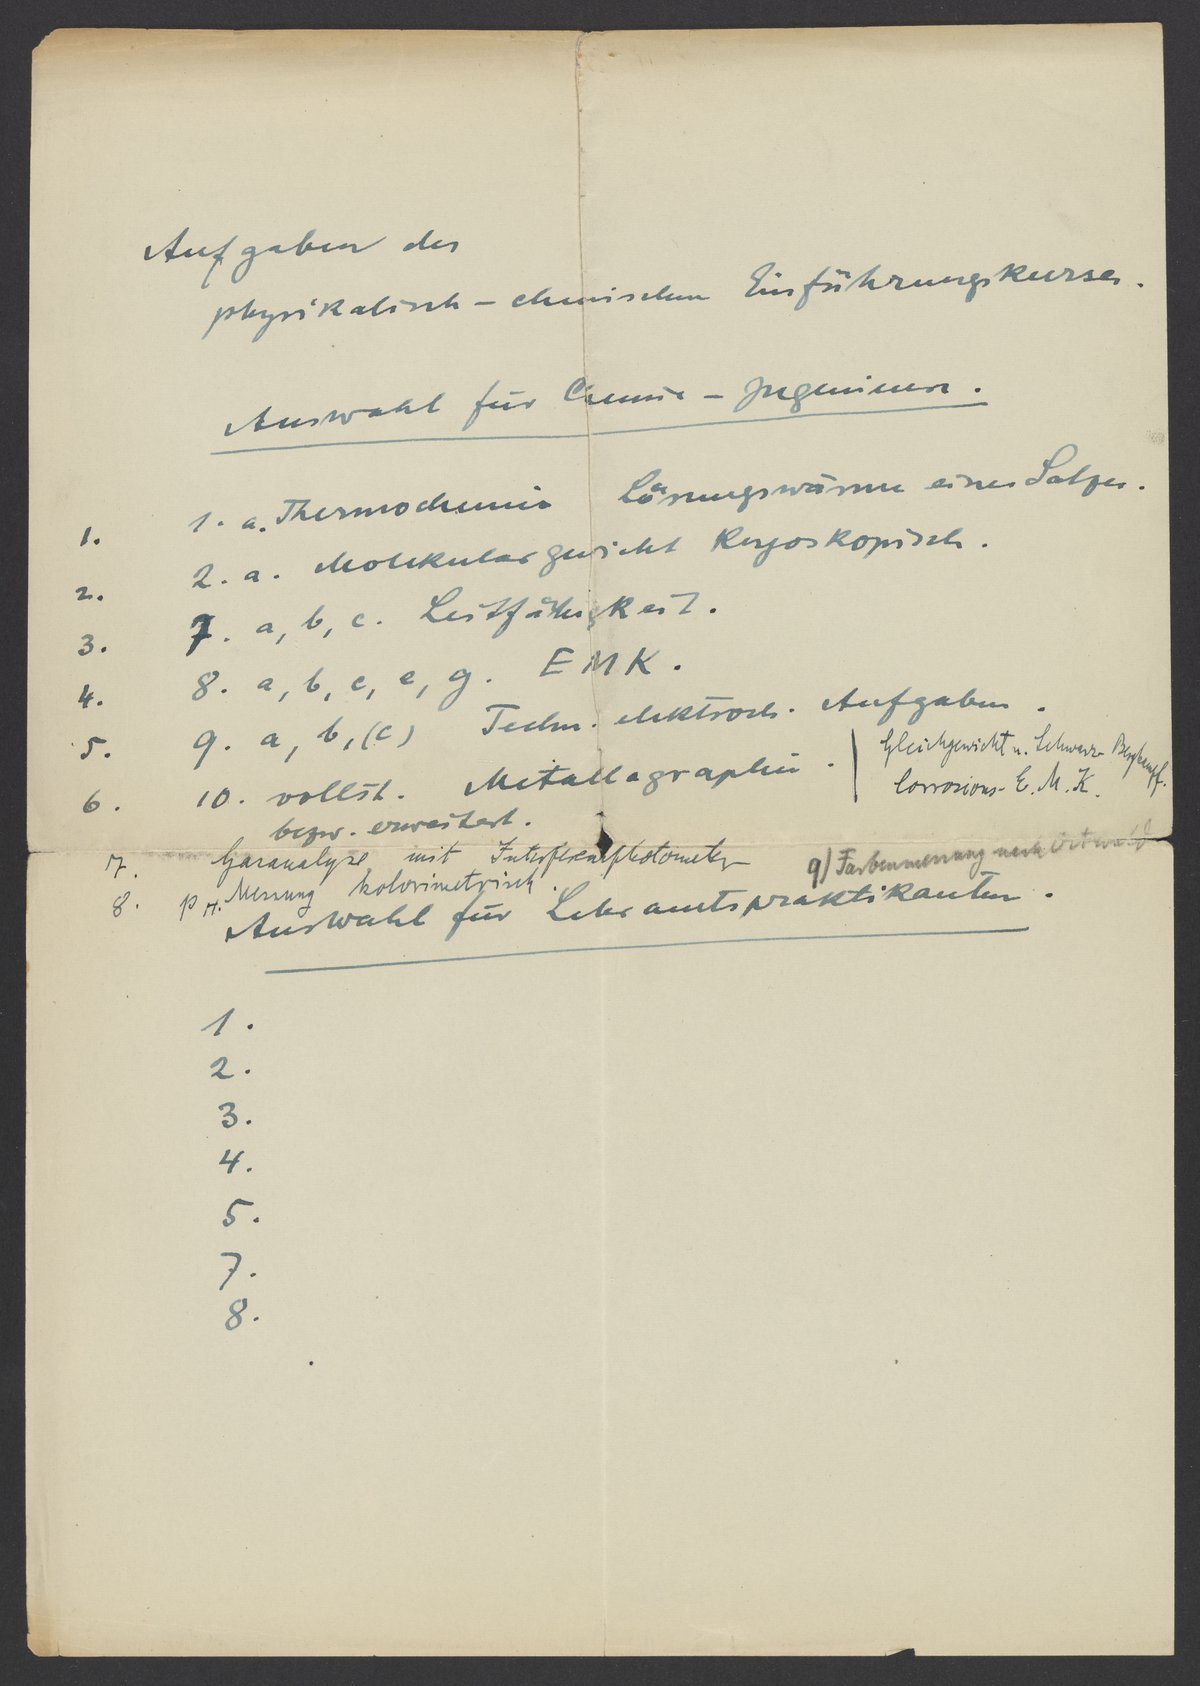 Aufgaben des
physikalisch-chemischen Einführungskurses.
Auswahl für Chemie-Ingenieure.
1. 1. a. Thermochemie Lösungswärme eines Salzes.
2. 2. a. Molekulargewicht Kryoskopisch.
3. 7. a, b, c. Leitfähigkeit.
4. 8. a, b, c, e, g. EMK.
5. 9. a, b, (c) Techn. elektroch. Aufgaben.
6. 10. vollst. Metallographie.
bezw. erweitert.
Gleichgewicht n. Schwarz
Corrosions-E.M.K.
7. Gasanalyse mit Interferenzphotometer
9) Farbenmessung nach Ostwald
8. pH. Messung kolorimetrisch.
Auswahl für Lehramtspraktikanten.
1.
2.
3.
4.
5.
7.
8.